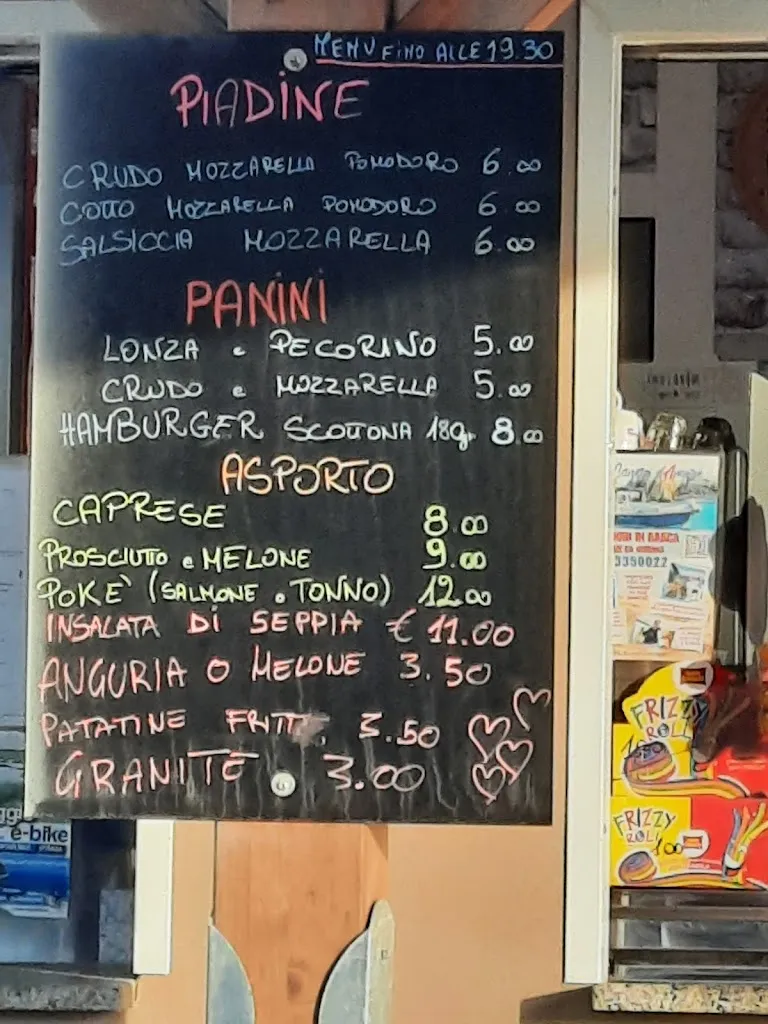 MENU FINO ALLE 19.30
PIADINE
CRUDO MOZZARELLA POMODORO 6.00
COTTO MOZZARELLA POMODORO 6.00
SALSICCIA MOZZARELLA 6.00
PANINI
LONZA e PECORINO 5.00
CRUDO e MOZZARELLA 5.00
HAMBURGER SCOTTONA 18g. 8.00
ASPORTO
CAPRESE 8.00
PROSCIUTTO e MELONE 9.00
POKE' (SALMONE o TONNO) 12.00
INSALATA DI SEPPIA € 11.00
ANGURIA O MELONE 3.50
PATATINE FRITT 3.50
GRANITE 3.00
e-bike
3350022
FRIZZY
ROLL
FRIZZY
ROLL
1.00